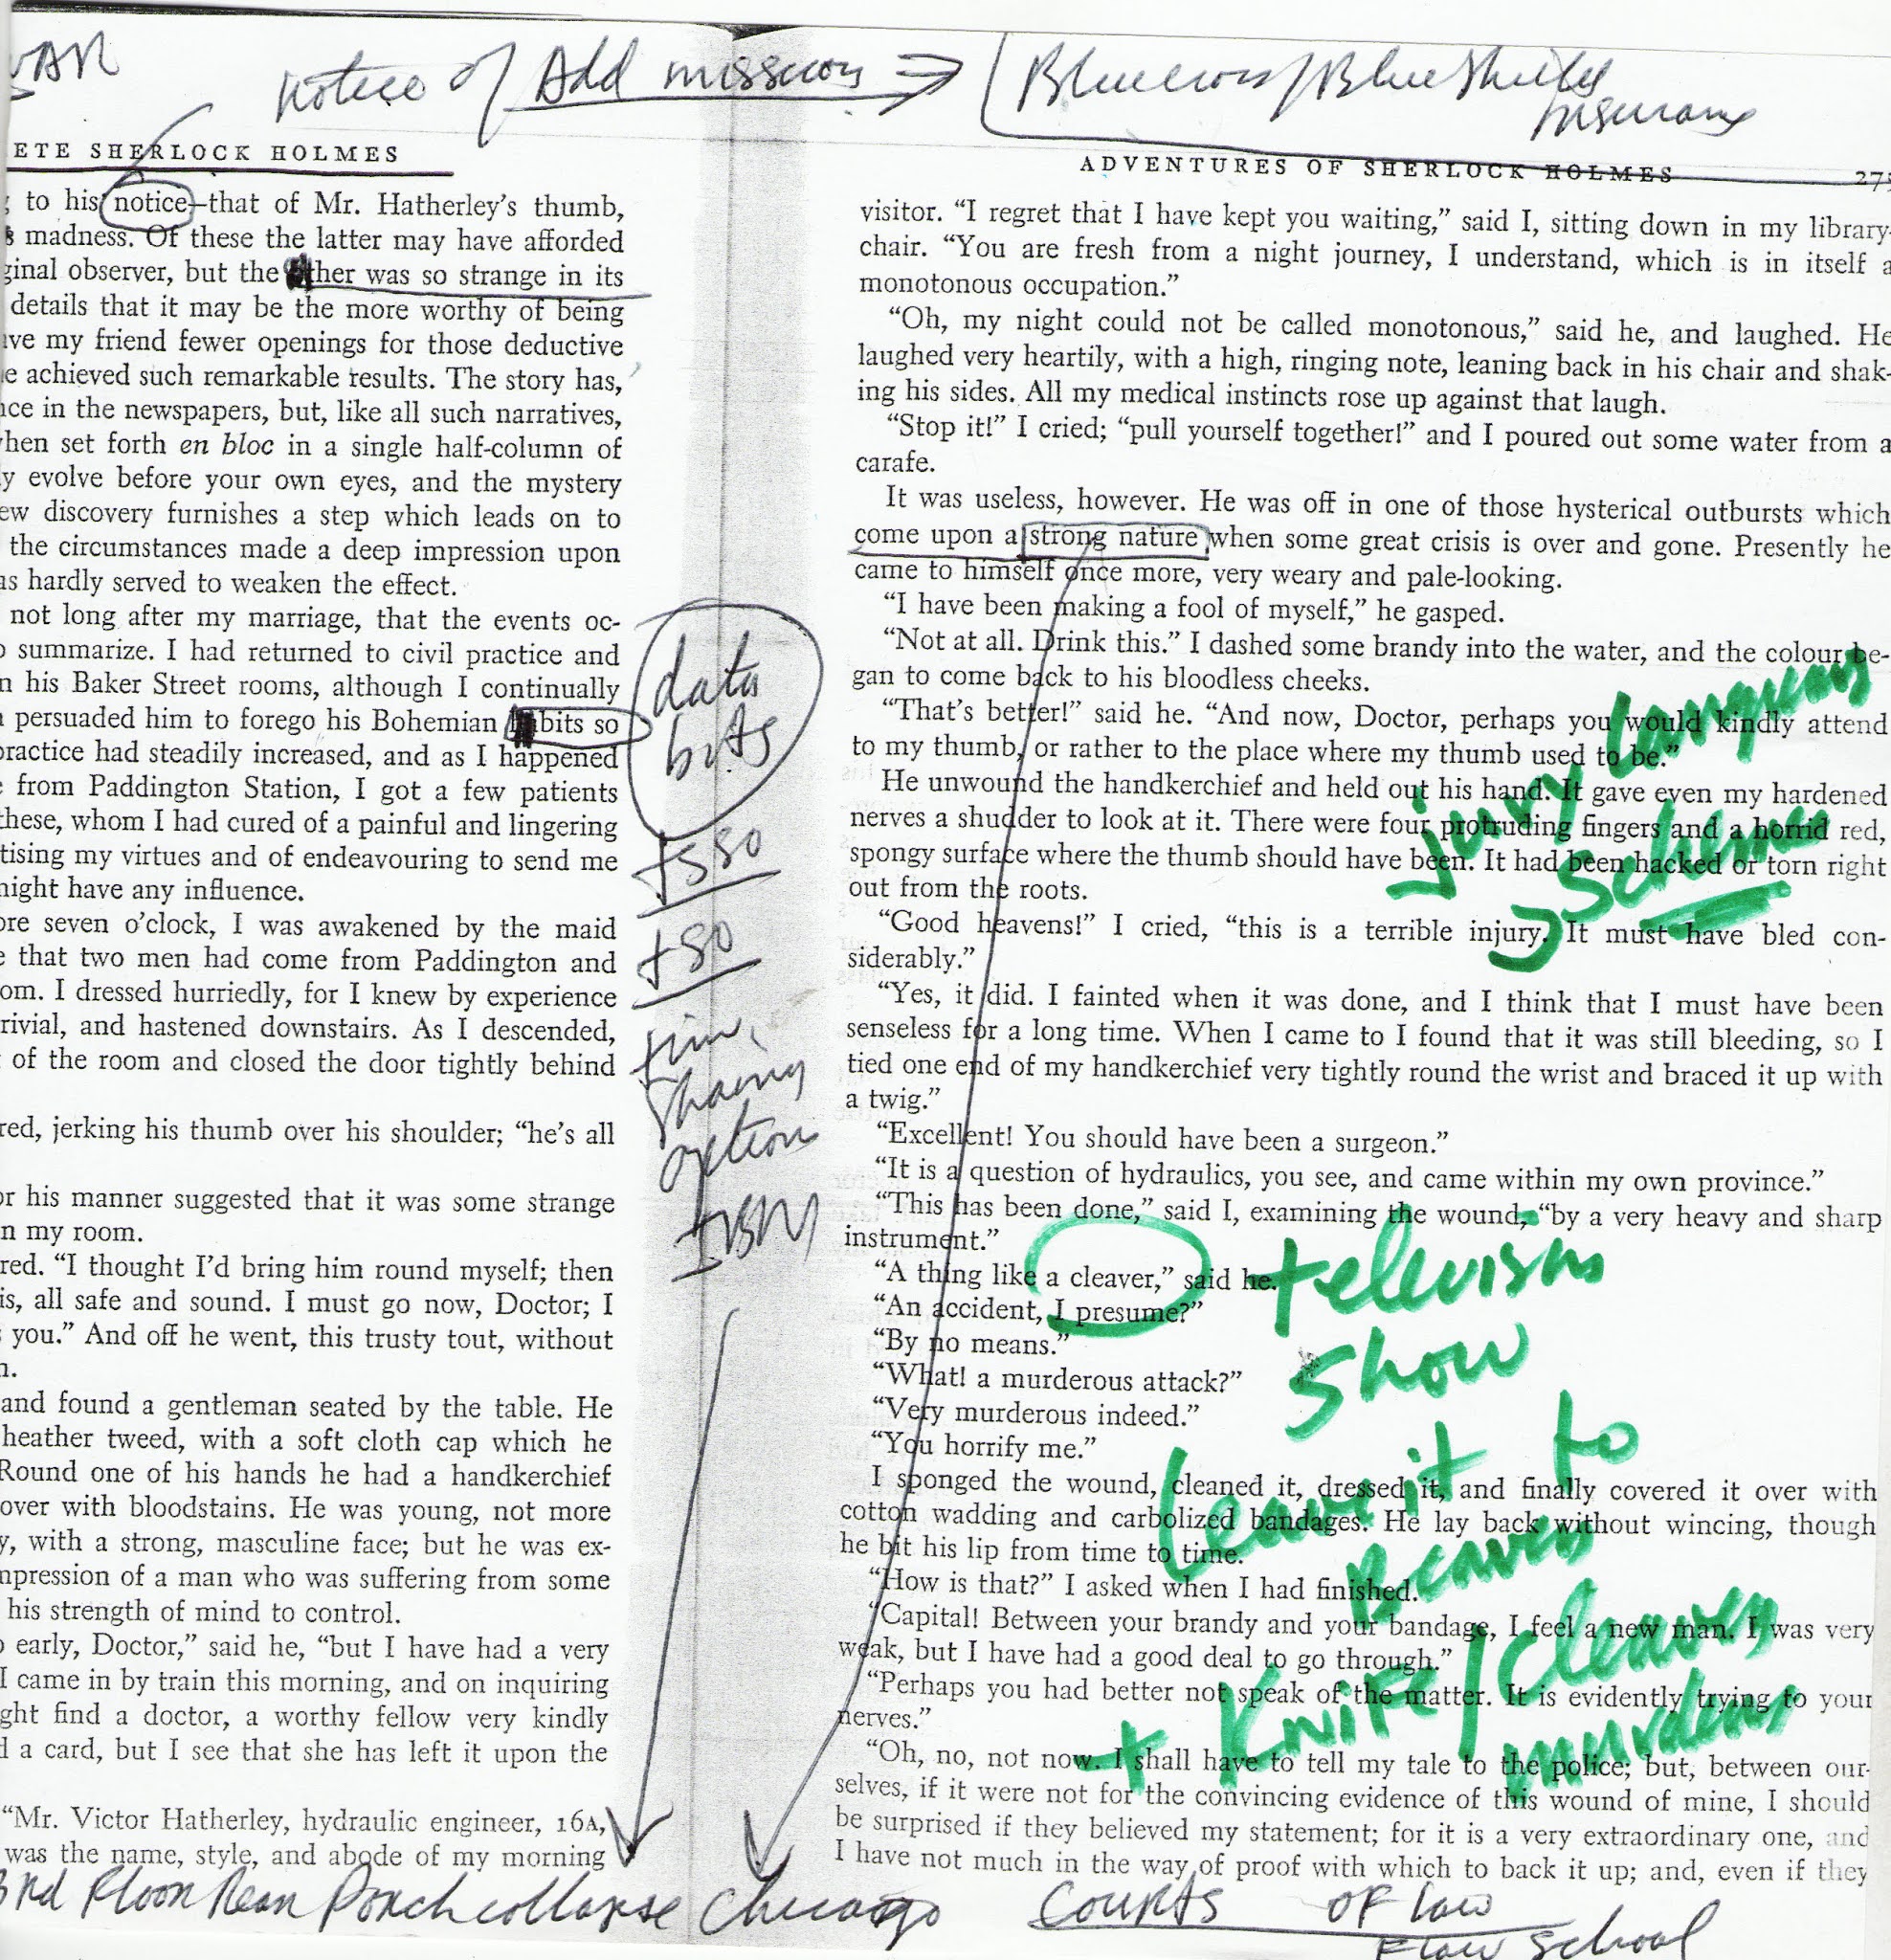 notice of Add mission ⇒ Bluecross/BlueShield
Insurance
ETE SHERLOCK HOLMES
to his notice—that of Mr. Hatherley's thumb,
madness. Of these the latter may have afforded
ginal observer, but the ther was so strange in its
details that it may be the more worthy of being
ve my friend fewer openings for those deductive
e achieved such remarkable results. The story has,
nce in the newspapers, but, like all such narratives,
hen set forth en bloc in a single half-column of
y evolve before your own eyes, and the mystery
ew discovery furnishes a step which leads on to
the circumstances made a deep impression upon
as hardly served to weaken the effect.
not long after my marriage, that the events oc-
summarize. I had returned to civil practice and
n his Baker Street rooms, although I continually
persuaded him to forego his Bohemian bits so
practice had steadily increased, and as I happened
from Paddington Station, I got a few patients
these, whom I had cured of a painful and lingering
tising my virtues and of endeavouring to send me
might have any influence.
ore seven o'clock, I was awakened by the maid
e that two men had come from Paddington and
om. I dressed hurriedly, for I knew by experience
rivial, and hastened downstairs. As I descended,
of the room and closed the door tightly behind
red, jerking his thumb over his shoulder; "he's all
or his manner suggested that it was some strange
n my room.
red. "I thought I'd bring him round myself; then
is, all safe and sound. I must go now, Doctor; I
you." And off he went, this trusty tout, without
and found a gentleman seated by the table. He
heather tweed, with a soft cloth cap which he
Round one of his hands he had a handkerchief
over with bloodstains. He was young, not more
y, with a strong, masculine face; but he was ex-
mpression of a man who was suffering from some
his strength of mind to control.
early, Doctor," said he, "but I have had a very
I came in by train this morning, and on inquiring
ght find a doctor, a worthy fellow very kindly
d a card, but I see that she has left it upon the
"Mr. Victor Hatherley, hydraulic engineer, 16A,
was the name, style, and abode of my morning
data
bits
+so
time
sharing
option
IBM
ADVENTURES OF SHERLOCK HOLMES 275
visitor. "I regret that I have kept you waiting," said I, sitting down in my library-
chair. "You are fresh from a night journey, I understand, which is in itself a
monotonous occupation."
"Oh, my night could not be called monotonous," said he, and laughed. He
laughed very heartily, with a high, ringing note, leaning back in his chair and shak-
ing his sides. All my medical instincts rose up against that laugh.
"Stop it!" I cried; "pull yourself together!" and I poured out some water from a
carafe.
It was useless, however. He was off in one of those hysterical outbursts which
come upon a strong nature when some great crisis is over and gone. Presently he
came to himself once more, very weary and pale-looking.
"I have been making a fool of myself," he gasped.
"Not at all. Drink this." I dashed some brandy into the water, and the colour be-
gan to come back to his bloodless cheeks.
"That's better!" said he. "And now, Doctor, perhaps you would kindly attend
to my thumb, or rather to the place where my thumb used to be."
He unwound the handkerchief and held out his hand. It gave even my hardened
nerves a shudder to look at it. There were four protruding fingers and a horrid red,
spongy surface where the thumb should have been. It had been hacked or torn right
out from the roots.
"Good heavens!" I cried, "this is a terrible injury. It must have bled con-
siderably."
"Yes, it did. I fainted when it was done, and I think that I must have been
senseless for a long time. When I came to I found that it was still bleeding, so I
tied one end of my handkerchief very tightly round the wrist and braced it up with
a twig."
"Excellent! You should have been a surgeon."
"It is a question of hydraulics, you see, and came within my own province."
"This has been done," said I, examining the wound, "by a very heavy and sharp
instrument."
"A thing like a cleaver," said he.
"An accident, I presume?"
"By no means."
"What! a murderous attack?"
"Very murderous indeed."
"You horrify me."
I sponged the wound, cleaned it, dressed it, and finally covered it over with
cotton wadding and carbolized bandages. He lay back without wincing, though
he bit his lip from time to time.
"How is that?" I asked when I had finished.
"Capital! Between your brandy and your bandage, I feel a new man. I was very
weak, but I have had a good deal to go through."
"Perhaps you had better not speak of the matter. It is evidently trying to your
nerves."
"Oh, no, not now. I shall have to tell my tale to the police; but, between our-
selves, if it were not for the convincing evidence of this wound of mine, I should
be surprised if they believed my statement; for it is a very extraordinary one, and
I have not much in the way of proof with which to back it up; and, even if they
jury language
Scheme
television
show
Leave it to
Beaver
+ KNIFE/Cleaver
murders
3rd Floor Rear Porch collapse Chicago
Courts OF law
law school